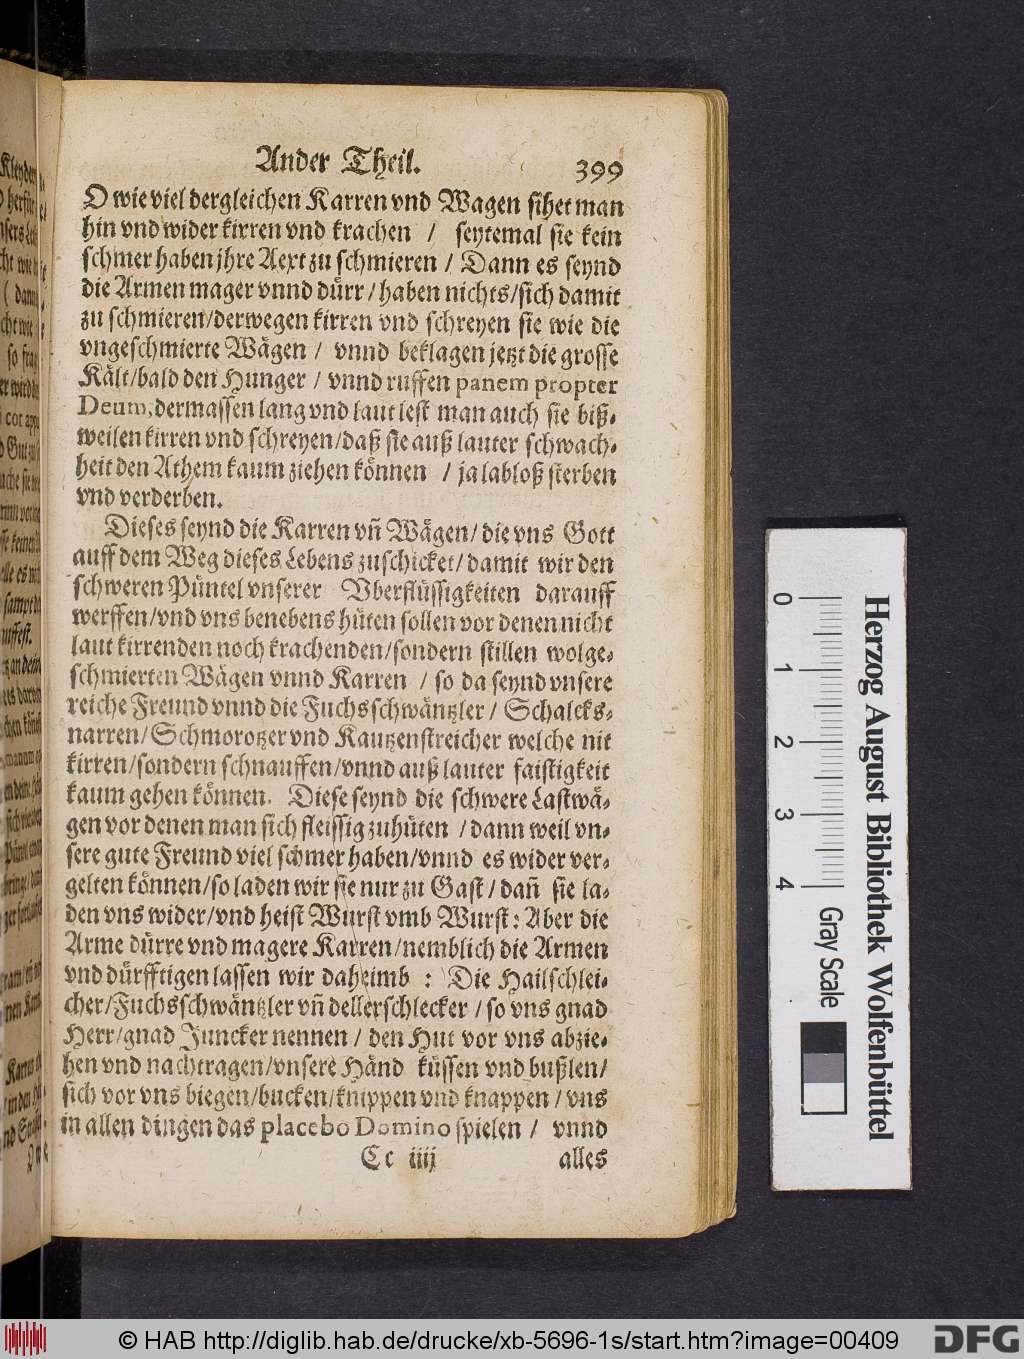 Ander Theil. 399
O wie viel dergleichen Karren vnd Wagen sihet man
hin vnd wider kirren vnd krachen / seytemal sie kein
schmer haben jhre Aext zu schmieren / Dann es seynd
die Armen mager vnnd dürr / haben nichts / sich damit
zu schmieren / derwegen kirren vnd schreyen sie wie die
vngeschmierte Wägen / vnnd beklagen jetzt die grosse
Kält / bald den Hunger / vnnd ruffen panem propter
Deum, dermassen lang vnd laut lest man auch sie biß-
weilen kirren vnd schreyen / daß sie auß lauter schwach-
heit den Athem kaum ziehen können / ja labloß sterben
vnd verderben.
Dieses seynd die Karren vñ Wägen / die vns Gott
auff dem Weg dieses Lebens zuschicket / damit wir den
schweren Püntel vnserer Vberflüssigkeiten darauff
werffen / vnd vns benebens hüten sollen vor denen nicht
laut kirrenden noch krachenden / sondern stillen wolge-
schmierten Wägen vnnd Karren / so da seynd vnsere
reiche Freund vnnd die Fuchsschwäntzler / Schalcks-
narren / Schmorotzer vnd Kautzenstreicher welche nit
kirren / sondern schnauffen / vnnd auß lauter faistigkeit
kaum gehen können. Diese seynd die schwere Lastwä-
gen vor denen man sich fleissig zuhüten / dann weil vn-
sere gute Freund viel schmer haben / vnnd es wider ver-
gelten können / so laden wir sie nur zu Gast / dañ sie la-
den vns wider / vnd heist Wurst vmb Wurst: Aber die
Arme dürre vnd magere Karren / nemblich die Armen
vnd dürfftigen lassen wir daheimb : Die Hailschlei-
cher / Fuchsschwäntzler vñ dellerschlecker / so vns gnad
Herr / gnad Juncker nennen / den Hut vor vns abzie-
hen vnd nachtragen / vnsere Händ küssen vnd bußlen /
sich vor vns biegen / bucken / knippen vnd knappen / vns
in allen dingen das placebo Domino spielen / vnnd
Cc iiij alles
0 1 2 3 4
Gray Scale
Herzog August Bibliothek Wolfenbüttel
© HAB http://diglib.hab.de/drucke/xb-5696-1s/start.htm?image=00409
DFG